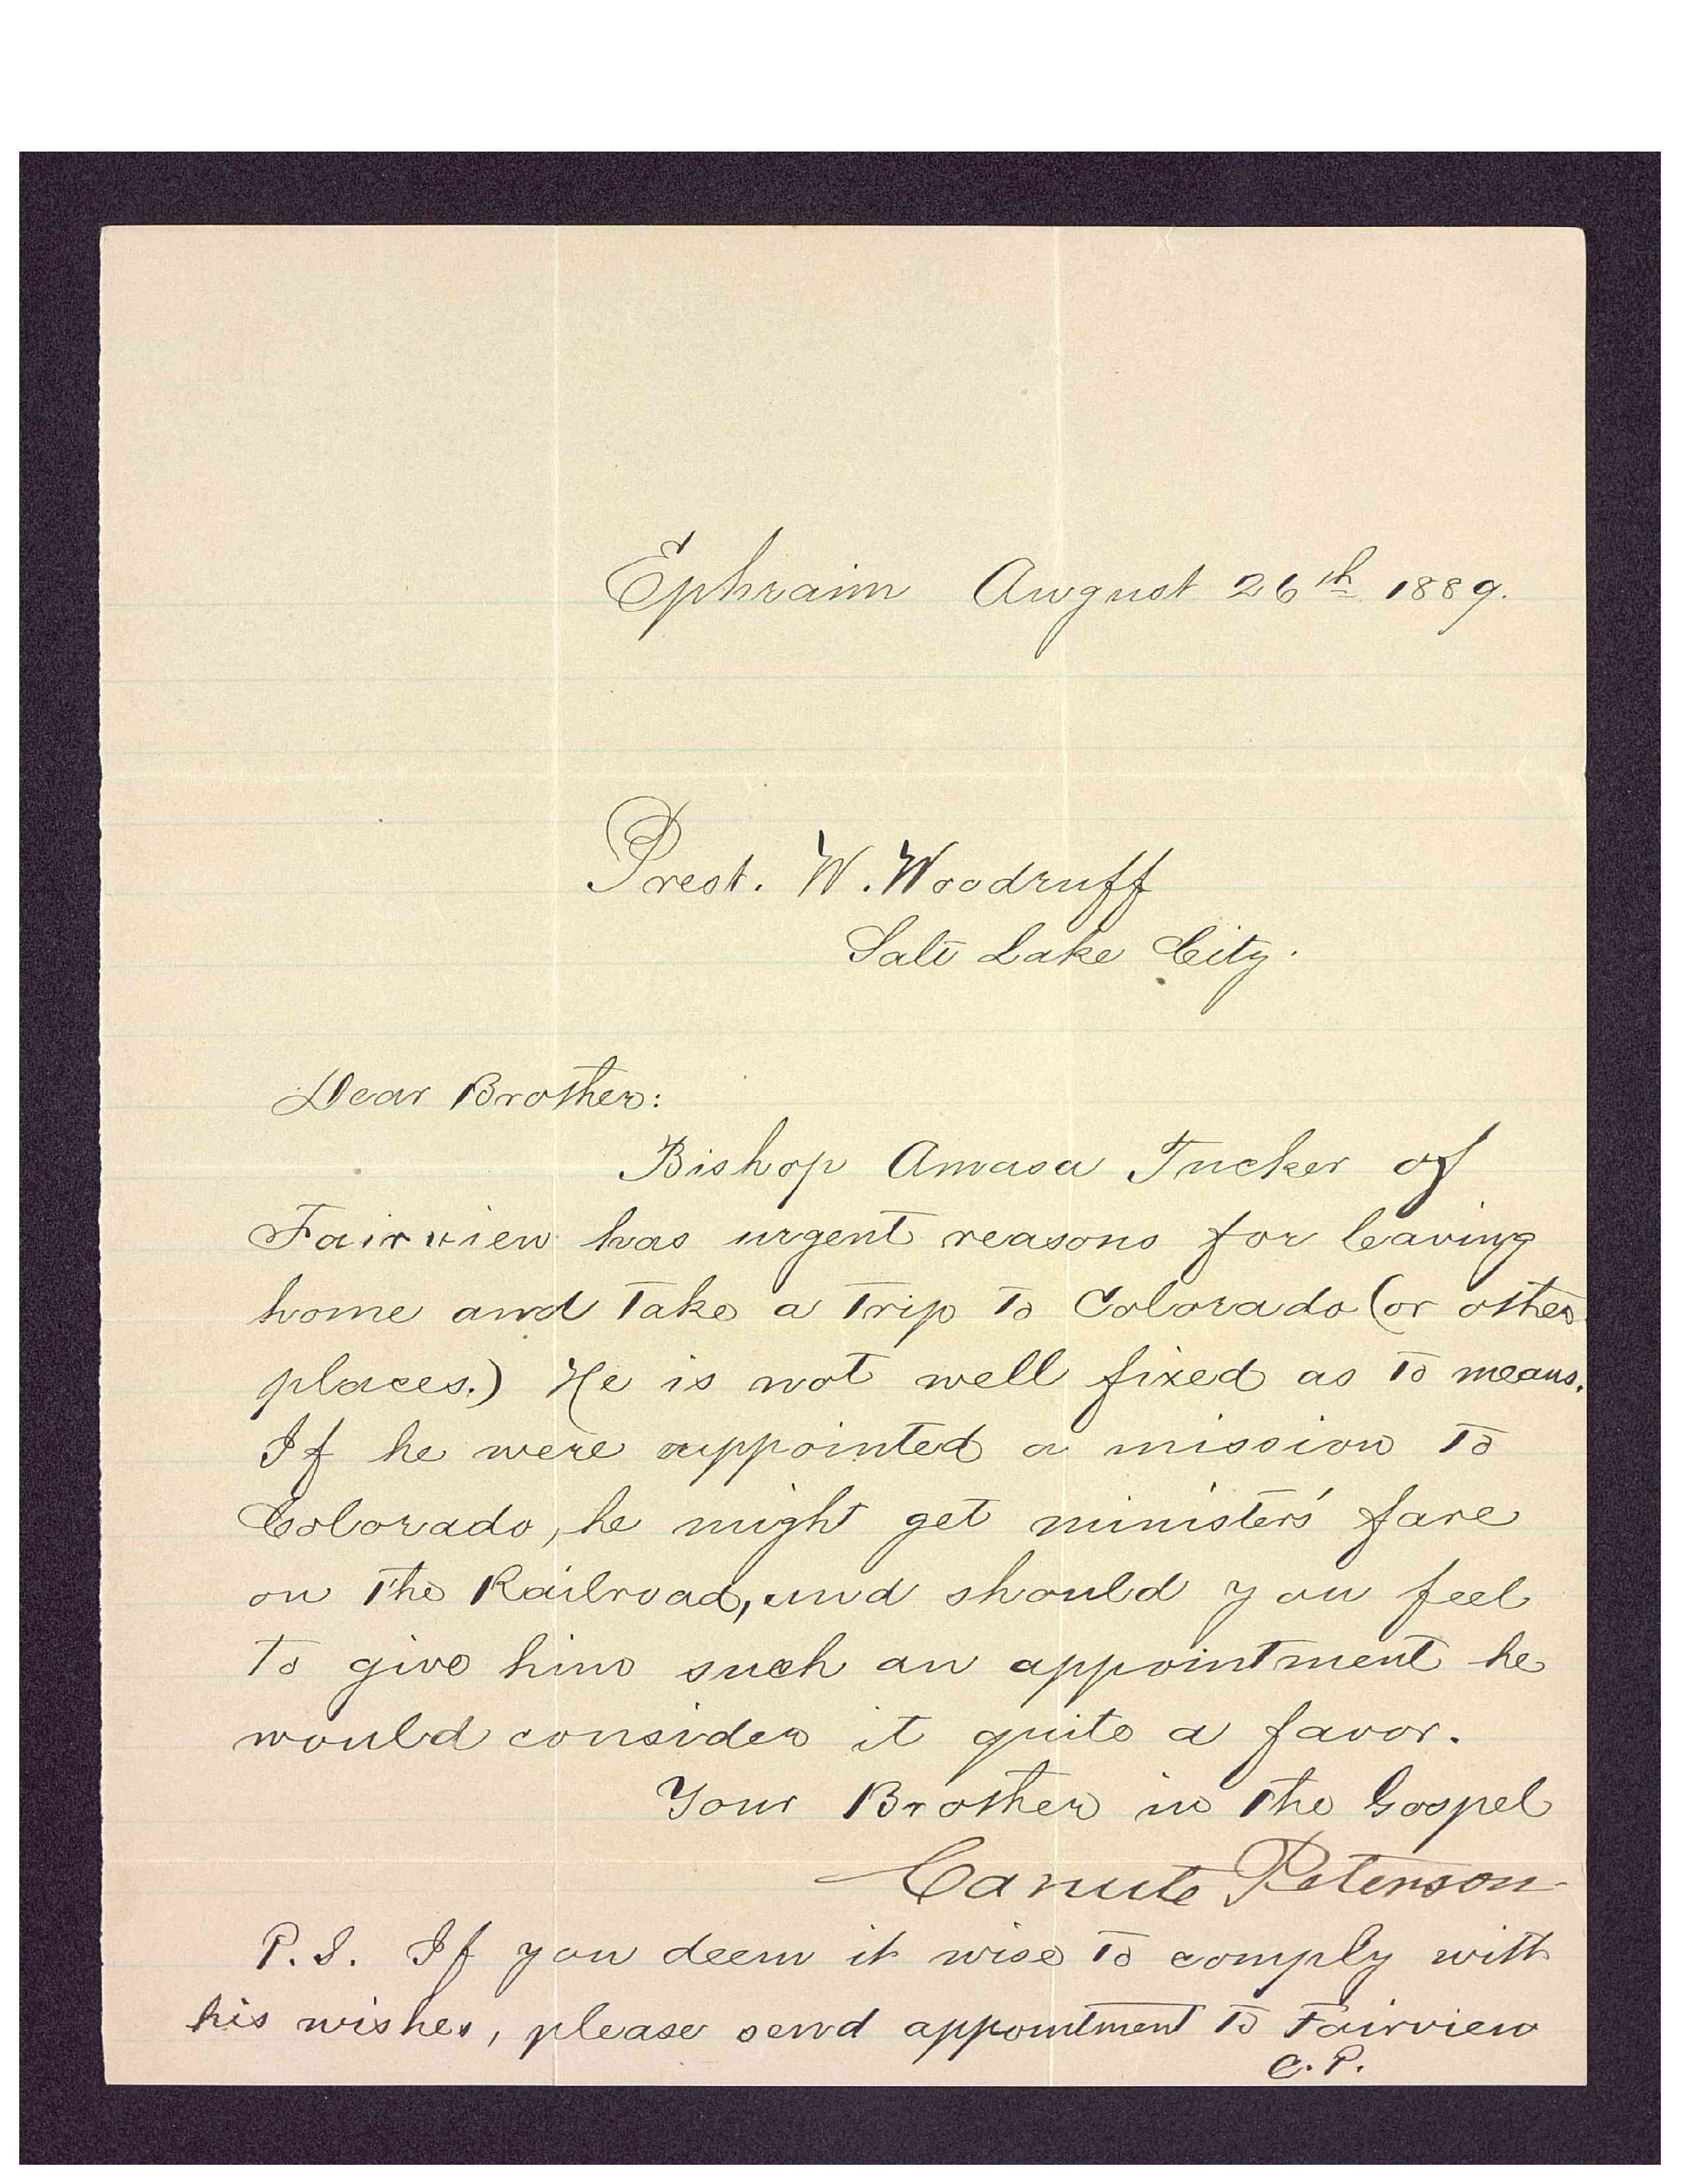 Ephraim August 26th 1889.
Prest. W. Woodruff
Salt Lake City.
Dear Brother:
Bishop Amasa Tucker of
Fairview has urgent reasons for leaving
home and take a trip to Colorado (or other
places.) He is not well fixed as to means.
If he were appointed a mission to
Colorado, he might get minister's fare
on the Railroad, and should you feel
to give him such an appointment he
would consider it quite a favor.
Your Brother in the Gospel
Canute Peterson
P.S. If you deem it wise to comply with
his wishes, please send appointment to Fairview
C.P.